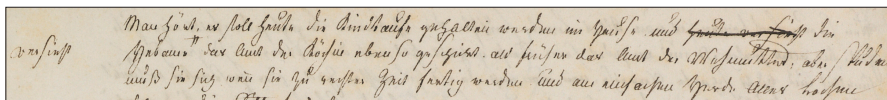 Man hört, es soll heute die Kindtaufe gehalten werden im Hause und heute versieht die
versieht
Hebame das Amt der Köchin ebenso geschickt als früher das Amt der Wehmutter; aber sputen
muß sie sich wen sie zu rechter Zeit fertig werden und am einfachen Herde alles kochen